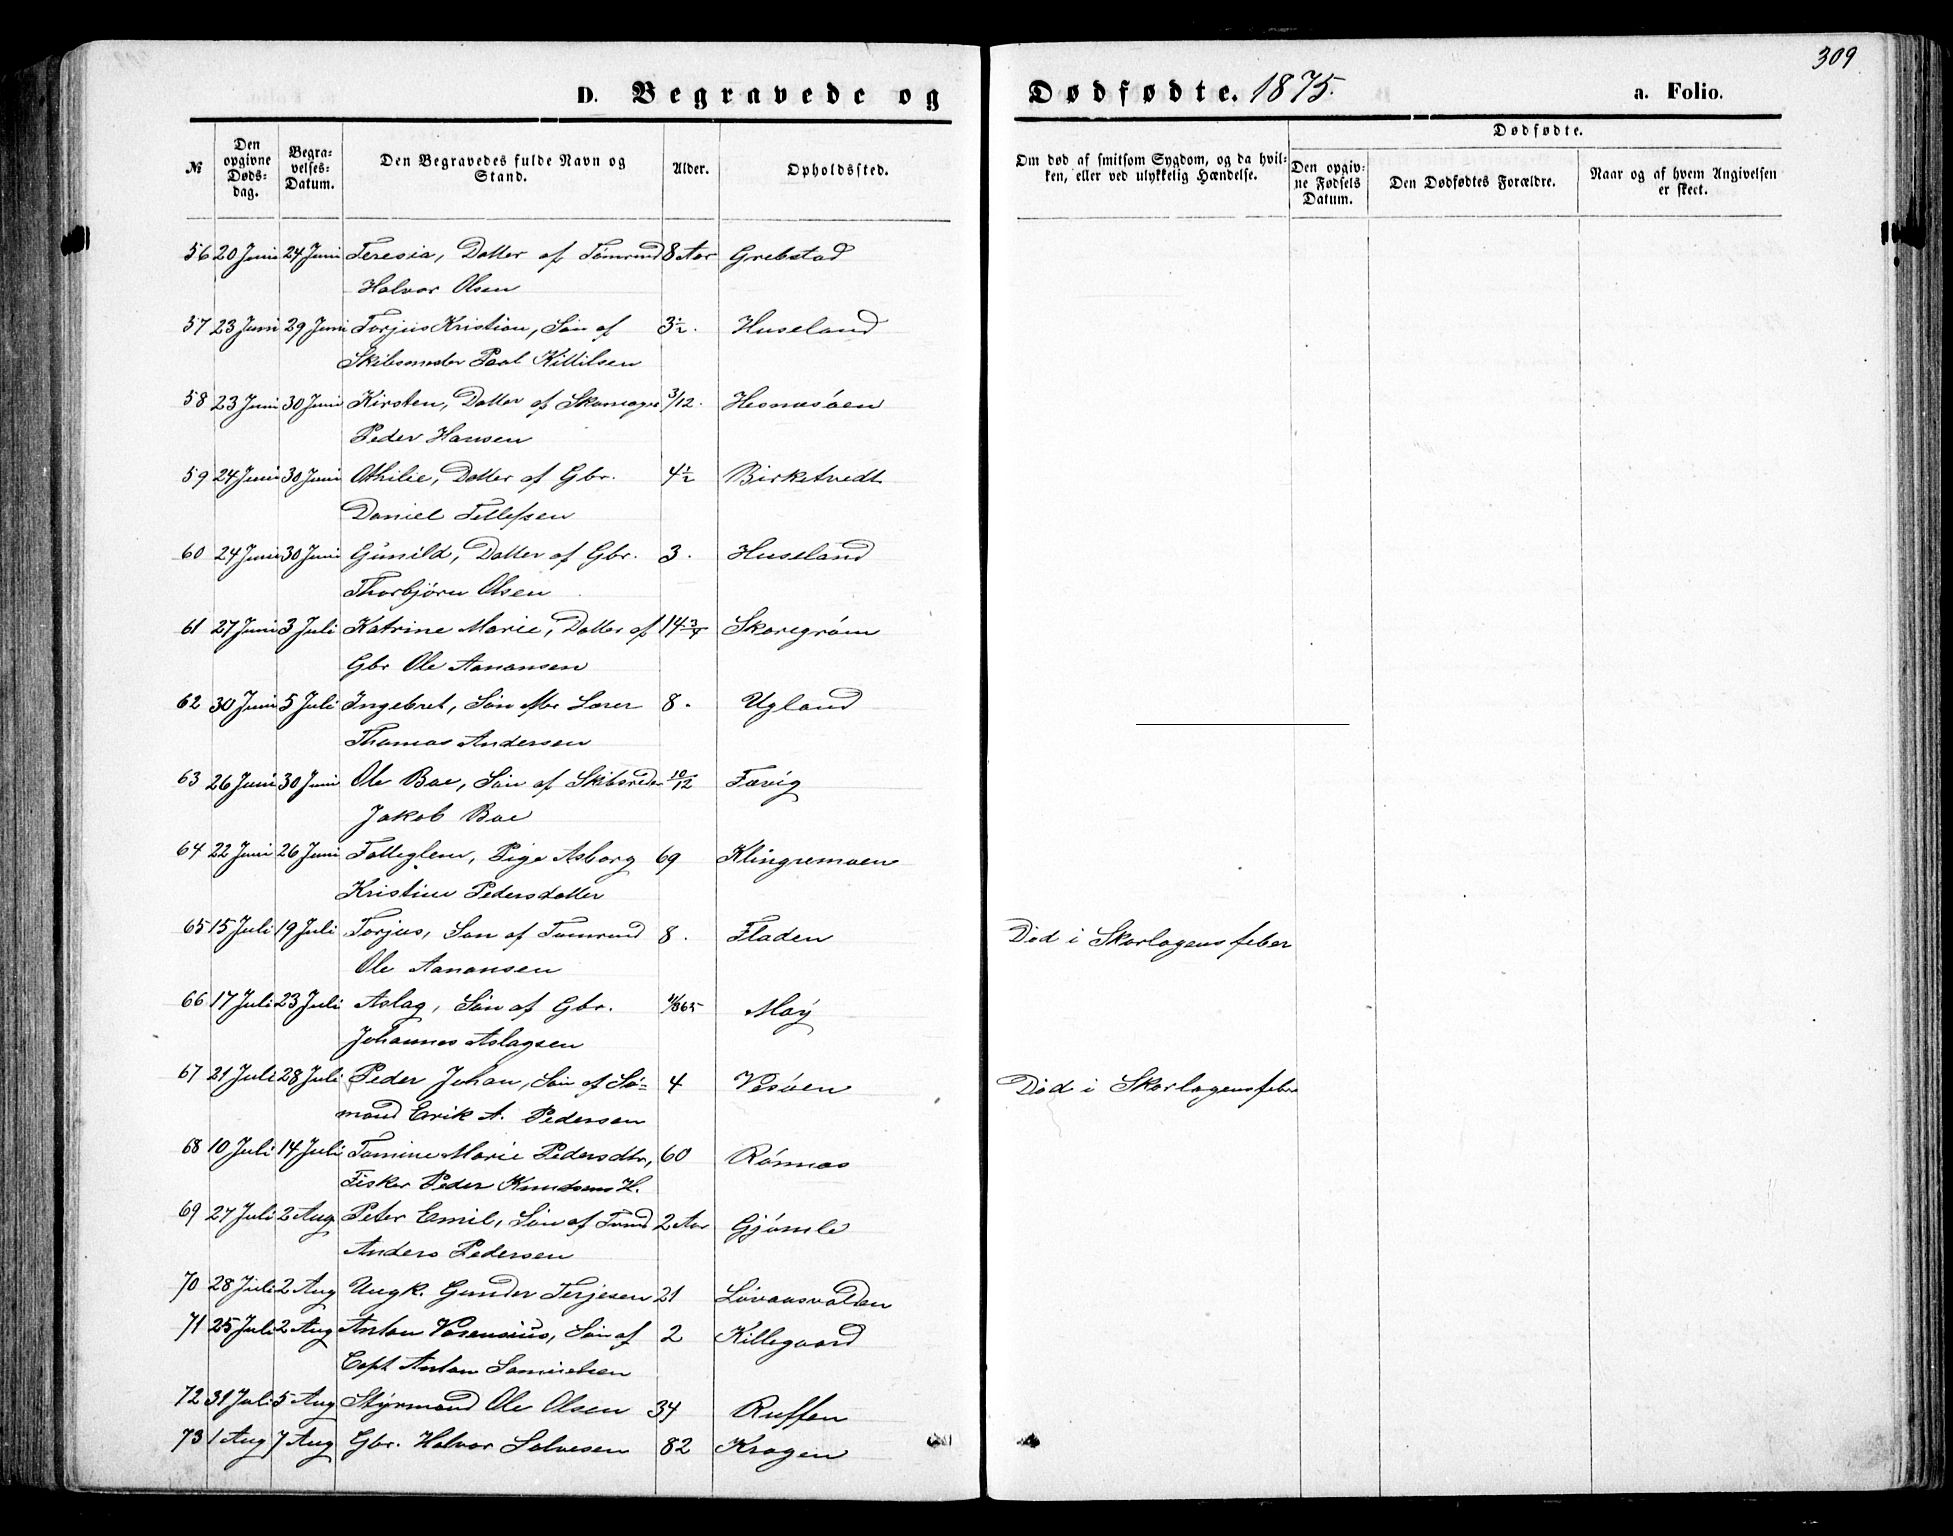 309
D. Begravede og Dødfødte. 1875. a. Folio.
№
Den opgivne Døds-dag.
Begra-velses-Datum.
Den Begravedes fulde Navn og Stand.
Alder.
Opholdssted.
Om død af smitsom Sygdom, og da hvil-ken, eller ved ulykkelig Hændelse.
Dødfødte.
Den opgiv-ne Fødsels Datum.
Den Dødfødtes Forældre.
Naar og af hvem Angivelsen er skeet.
56 20 Juni 24 Juni Teresia, Datter af Tømrmd 8 Aar Grebstad
Halvor Olsen
57 23 Juni 29 Juni Torjus Kristian, Søn af 3½. Huseland
Skibsmester Paal Kittilsen
58 23 Juni 30 Juni Kirsten, Datter af Skomager 3/12. Hesnesøen
Peder Hansen
59 24 Juni 30 Juni Othilie, Datter af Gbr. 4½ Birketvedt
Daniel Tellefsen
60 24 Juni 30 Juni Gunild, Datter af Gbr. 3. Huseland
Thorbjørn Olsen
61 27 Juni 3 Juli Katrine Marie, Datter af 14¾ Skaregrøm
Gbr Ole Aanonsen
62 30 Juni 5 Juli Ingebret, Søn af Lærer 8. Ugland
Thomas Andersen
63 26 Juni 30 Juni Ole Boe, Søn af Skibsreder 10/12 Færvig
Jakob Boe
64 22 Juni 26 Juni Fattiglem, Pige Asborg 69 Klingremoen
Kristine Pedersdatter
65 15 Juli 19 Juli Torjus, Søn af Tømrmd 8. Fladen Død i Skarlagensfeber
Ole Aanonsen
66 17 Juli 23 Juli Aslag, Søn af Gbr. Moy
Johannes Aslagsen
67 21 Juli 28 Juli Peder Johan, Søn af Sø- 4 Vesøen Død i Skarlagensfeber
mand Erik A. Pedersen
68 10 Juli 14 Juli Tomine Marie Pedersdtr, 60 Rønnes
Fisker Peder Knudsens H.
69 27 Juli 2 Aug Peter Emil, Søn af Tømd 2 Aar Gjømle
Anders Pedersen
70 28 Juli 2 Aug Ungk. Gunder Terjesen 21 Løvaasvolden
71 25 Juli 2 Aug Anton Vosensius, Søn af 2 Killegaard
Capt Anton Samuelsen
72 31 Juli 5 Aug Styrmand Ole Olsen 34 Ruffen
73 1 Aug 7 Aug Gbr. Halvor Salvesen 82 Kragen